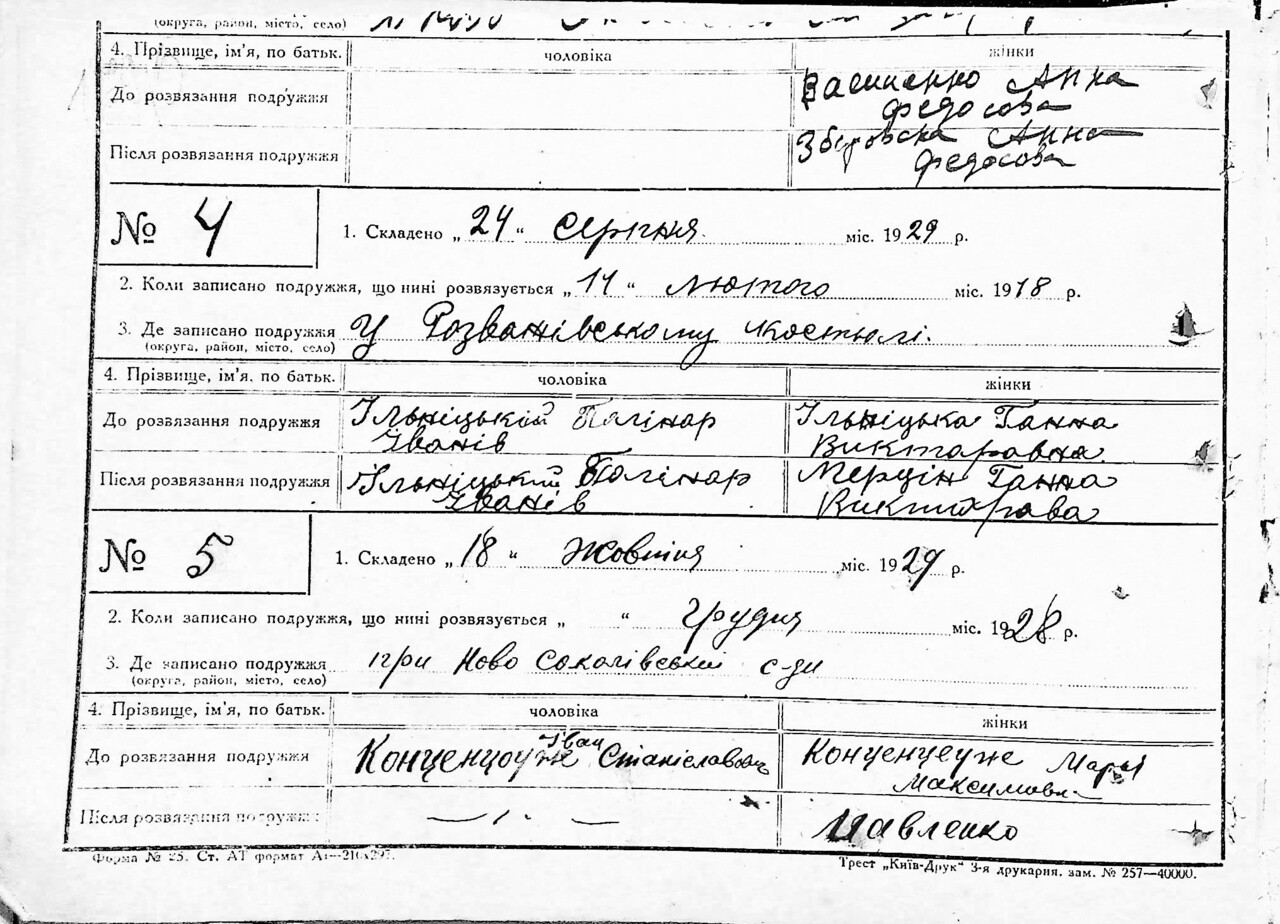 (округа, район, місто, село)
4. Прізвище, ім'я, по батьк. чоловіка жінки
До розвязання подружжя Ващенко Анна
Федосова
Після розвязання подружжя Анна
Федосова
№ 4 1. Складено „24“ Серпня міс. 1929 р.
2. Коли записано подружжя, що нині розвязується „14“ лютого міс. 1918 р.
3. Де записано подружжя У Розванівському костьолі.
(округа, район, місто, село)
4. Прізвище, ім'я, по батьк. чоловіка жінки
До розвязання подружжя Ільніцький Ільніцька Ганна
Іванів Викторовна
Після розвязання подружжя Ільніцький Ганна
Іванів
№ 5 1. Складено „18“ Жовтня міс. 1929 р.
2. Коли записано подружжя, що нині розвязується „ “ грудня міс. 1928 р.
3. Де записано подружжя при Ново с-ди
(округа, район, місто, село)
4. Прізвище, ім'я, по батьк. чоловіка жінки
Іван
До розвязання подружжя Станіславович Марія
Максимовн
Після розвязання подружжя — „ — Павленко
Форма № 25. Ст. АТ формат А₁—210х297.
Трест „Київ-Друк“ 3-я друкарня, зам. № 257—40000.